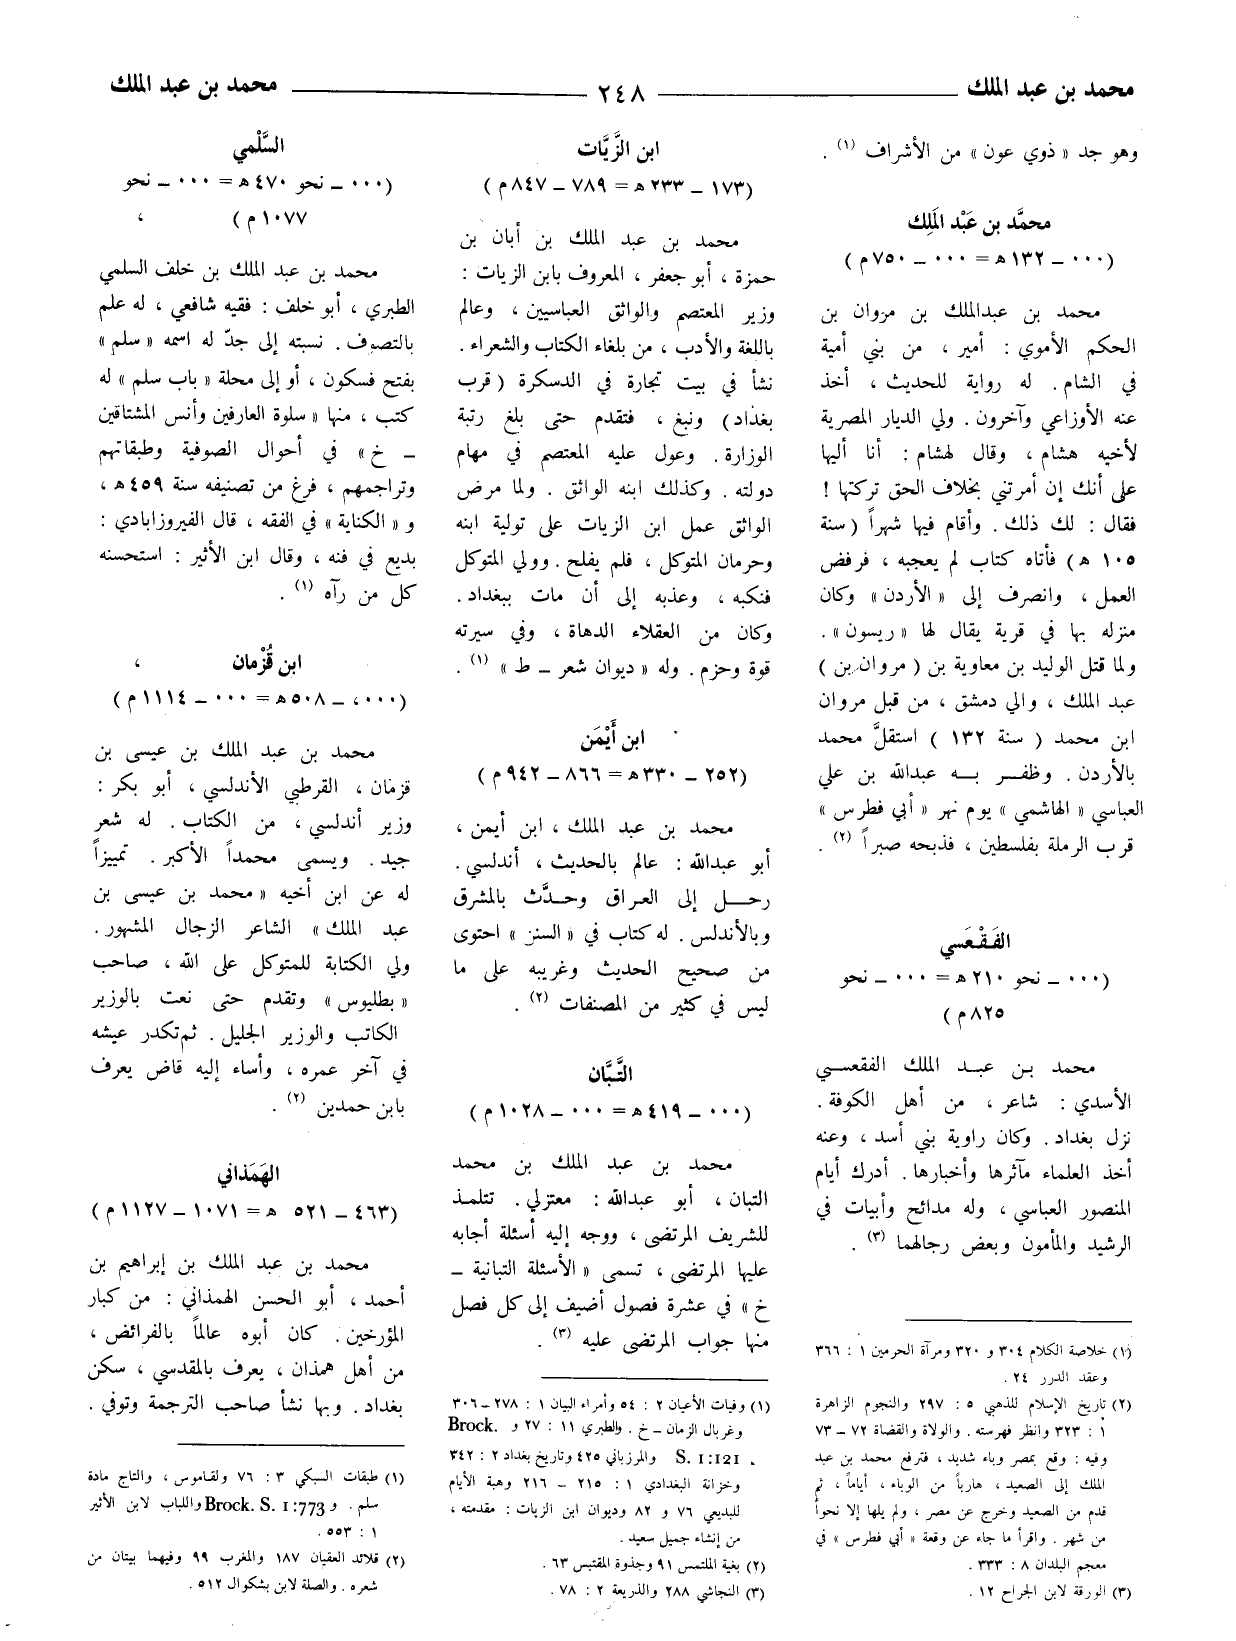 محمد بن عبد الملك ــــ ٢٤٨ ــــ محمد بن عبد الملك
وهو جد « ذوي عون » من الأشراف (١) .
محمَّد بن عَبْد المَلِك
(٠٠٠ ــ ١٣٢ ه = ٠٠٠ ــ ٧٥٠ م)
محمد بن عبدالملك بن مروان بن
الحكم الأموي : أمير ، من بني أمية
في الشام . له رواية للحديث ، أخذ
عنه الأوزاعي وآخرون . ولي الديار المصرية
لأخيه هشام ، وقال لهشام : أنا أليها
على أنك إن أمرتني بخلاف الحق تركتها !
فقال : لك ذلك . وأقام فيها شهراً ( سنة
١٠٥ ه ) فأتاه كتاب لم يعجبه ، فرفض
العمل ، وانصرف إلى « الأردن » وكان
منزله بها في قرية يقال لها « ريسون » .
ولما قتل الوليد بن معاوية بن ( مروان بن )
عبد الملك ، والي دمشق ، من قبل مروان
ابن محمد ( سنة ١٣٢ ) استقلَّ محمد
بالأردن . وظفر به عبدالله بن علي
العباسي « الهاشمي » يوم نهر « أبي فطرس »
قرب الرملة بفلسطين ، فذبحه صبراً (٢) .
الفَقْعَسي
(٠٠٠ ــ نحو ٢١٠ ه = ٠٠٠ ــ نحو
٨٢٥ م)
محمد بن عبد الملك الفقعسي
الأسدي : شاعر ، من أهل الكوفة .
نزل بغداد . وكان راوية بني أسد ، وعنه
أخذ العلماء مآثرها وأخبارها . أدرك أيام
المنصور العباسي ، وله مدائح وأبيات في
الرشيد والمأمون وبعض رجالهما (٣) .
(١) خلاصة الكلام ٣٠٤ و ٣٢٠ ومرآة الحرمين ١ : ٣٦٦
وعقد الدرر ٢٤ .
(٢) تاريخ الإسلام للذهبي ٥ : ٢٩٧ والنجوم الزاهرة
١ : ٣٢٣ وانظر فهرسته . والولاة والقضاة ٧٢ ــ ٧٣
وفيه : وقع بمصر وباء شديد ، فترفع محمد بن عبد
الملك إلى الصعيد ، هارباً من الوباء ، أياماً ، ثم
قدم من الصعيد وخرج عن مصر ، ولم يلها إلا نحواً
من شهر . واقرأ ما جاء عن وقعة « أبي فطرس » في
معجم البلدان ٨ : ٣٣٣ .
(٣) الورقة لابن الجراح ١٢ .
ابن الزَّيَّات
(١٧٣ ــ ٢٣٣ ه = ٧٨٩ ــ ٨٤٧ م)
محمد بن عبد الملك بن أبان بن
حمزة ، أبو جعفر ، المعروف بابن الزيات :
وزير المعتصم والواثق العباسيين ، وعالم
باللغة والأدب ، من بلغاء الكتاب والشعراء .
نشأ في بيت تجارة في الدسكرة ( قرب
بغداد ) ونبغ ، فتقدم حتى بلغ رتبة
الوزارة . وعول عليه المعتصم في مهام
دولته . وكذلك ابنه الواثق . ولما مرض
الواثق عمل ابن الزيات على تولية ابنه
وحرمان المتوكل ، فلم يفلح . وولي المتوكل
فنكبه ، وعذبه إلى أن مات ببغداد .
وكان من العقلاء الدهاة ، وفي سيرته
قوة وحزم . وله « ديوان شعر ــ ط » (١) .
ابن أَيْمَن
(٢٥٢ ــ ٣٣٠ ه = ٨٦٦ ــ ٩٤٢ م)
محمد بن عبد الملك ، ابن أيمن ،
أبو عبدالله : عالم بالحديث ، أندلسي .
رحل إلى العراق وحدَّث بالمشرق
وبالأندلس . له كتاب في « السنن » احتوى
من صحيح الحديث وغريبه على ما
ليس في كثير من المصنفات (٢) .
التَّبَّان
(٠٠٠ ــ ٤١٩ ه = ٠٠٠ ــ ١٠٢٨ م)
محمد بن عبد الملك بن محمد
التبان ، أبو عبدالله : معتزلي . تتلمذ
للشريف المرتضى ، ووجه إليه أسئلة أجابه
عليها المرتضى ، تسمى « الأسئلة التبانية ــ
خ » في عشرة فصول أضيف إلى كل فصل
منها جواب المرتضى عليه (٣) .
(١) وفيات الأعيان ٢ : ٥٤ وأمراء البيان ١ : ٢٧٨ ــ ٣٠٦
وغربال الزمان ــ خ . والطبري ١١ : ٢٧ و Brock.
S. 1:121 . والمرزباني ٤٢٥ وتاريخ بغداد ٢ : ٣٤٢
وخزانة البغدادي ١ : ٢١٥ ــ ٢١٦ وهبة الأيام
للبديعي ٧٦ و ٨٢ وديوان ابن الزيات : مقدمته ،
من إنشاء جميل سعيد .
(٢) بغية الملتمس ٩١ وجذوة المقتبس ٦٣ .
(٣) النجاشي ٢٨٨ والذريعة ٢ : ٧٨ .
السَّلْمي
(٠٠٠ ــ نحو ٤٧٠ ه = ٠٠٠ ــ نحو
١٠٧٧ م)
محمد بن عبد الملك بن خلف السلمي
الطبري ، أبو خلف : فقيه شافعي ، له علم
بالتصوف . نسبته إلى جدّ له اسمه « سلم »
بفتح فسكون ، أو إلى محلة « باب سلم » له
كتب ، منها « سلوة العارفين وأنس المشتاقين
ــ خ » في أحوال الصوفية وطبقاتهم
وتراجمهم ، فرغ من تصنيفه سنة ٤٥٩ ه ،
و « الكناية » في الفقه ، قال الفيروزابادي :
بديع في فنه ، وقال ابن الأثير : استحسنه
كل من رآه (١) .
ابن قُزْمان
(٠٠٠ ــ ٥٠٨ ه = ٠٠٠ ــ ١١١٤ م)
محمد بن عبد الملك بن عيسى بن
قزمان ، القرطبي الأندلسي ، أبو بكر :
وزير أندلسي ، من الكتاب . له شعر
جيد . ويسمى محمداً الأكبر . تمييزاً
له عن ابن أخيه « محمد بن عيسى بن
عبد الملك » الشاعر الزجال المشهور .
ولي الكتابة للمتوكل على الله ، صاحب
« بطليوس » وتقدم حتى نعت بالوزير
الكاتب والوزير الجليل . ثم تكدر عيشه
في آخر عمره ، وأساء إليه قاض يعرف
بابن حمدين (٢) .
الهَمَذاني
(٤٦٣ ــ ٥٢١ ه = ١٠٧١ ــ ١١٢٧ م)
محمد بن عبد الملك بن إبراهيم بن
أحمد ، أبو الحسن الهمذاني : من كبار
المؤرخين . كان أبوه عالماً بالفرائض ،
من أهل همذان ، يعرف بالمقدسي ، سكن
بغداد . وبها نشأ صاحب الترجمة وتوفي .
(١) طبقات السبكي ٣ : ٧٦ ولقاموس ، والتاج مادة
سلم . و Brock. S. 1:773 واللباب لابن الأثير
١ : ٥٥٣ .
(٢) قلائد العقيان ١٨٧ والمغرب ٩٩ وفيهما بيتان من
شعره . والصلة لابن بشكوال ٥١٢ .